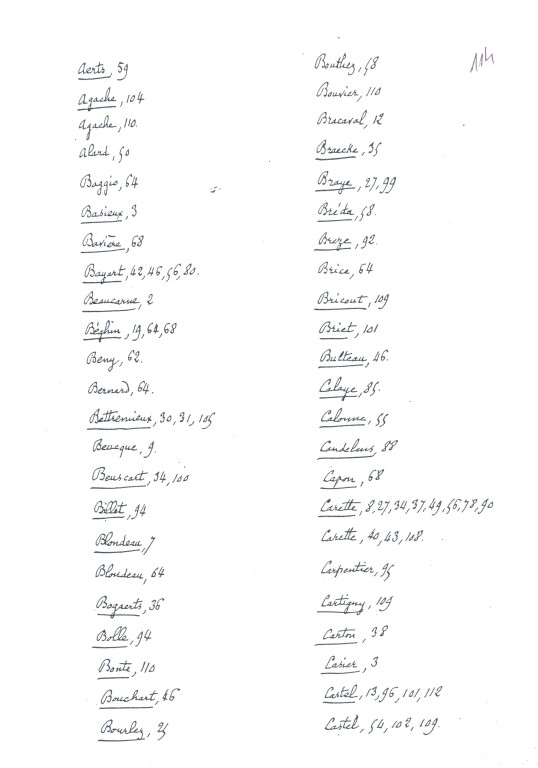 114
Aerts, 59
Agache, 104
Agache, 110.
Alard, 50
Baggio, 64
Basieux, 3
Bavière, 68
Bayart, 42, 46, 56, 80.
Beaucarne, 2
Béghin, 19, 64, 68
Beny, 62.
Bernard, 64.
Bettremieux, 30, 31, 105
Beucque, 9.
Beuscart, 34, 100
Billet, 94
Blondeau, 7
Blondeau, 64
Bogaerts, 36
Bolle, 94
Bonte, 110
Bouchart, 46
Bourlez, 25
Bouthez, 58
Bouvier, 110
Bracaval, 12
Braecke, 35
Braye, 27, 99
Bréda, 58.
Breze, 92.
Brice, 64
Bricout, 109
Briet, 101
Bulteau, 46.
Calaye, 85.
Calonne, 55
Candelans, 88
Capon, 68
Carette, 8, 27, 34, 37, 49, 56, 78, 90
Carette, 40, 43, 108.
Carpentier, 95
Cartigny, 109
Carton, 38
Casier, 3
Castel, 13, 96, 101, 112
Castel, 54, 102, 109.